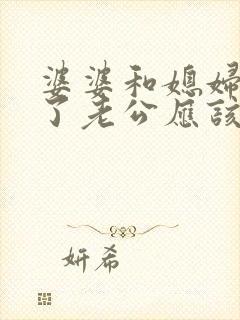 婆婆和媳婦
了老公應該
妍希